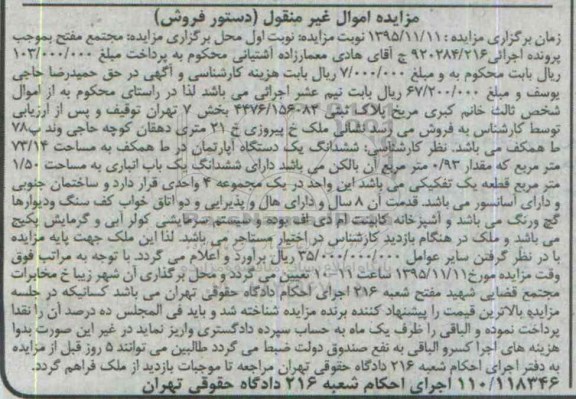 مزایده اموال غیر منقول (دستور فروش)
زمان برگزاری مزایده: ۱۳۹۵/۱۱/۱۱ نوبت مزایده: نوبت اول محل برگزاری مزایده: مجتمع مفتح بموجب
پرونده اجرائی ۹۲۰۲۸۴/۲۱۶ ج آقای هادی معمارزاده آشتیانی محکوم به پرداخت مبلغ ۱۰۳/۰۰۰/۰۰۰
ریال بابت محکوم به و مبلغ ۷/۰۰۰/۰۰۰ ریال بابت هزینه کارشناسی و آگهی در حق حمیدرضا حاجی
یوسف و مبلغ ۶۷/۲۰۰/۰۰۰ ریال بابت نیم عشر اجرائی می باشد لذا در راستای محکوم به از اموال
شخص ثالث خانم کبری مریخ پلاک ثبتی ۴۴۷۶/۱۵۶۰۸۴ بخش ۷ تهران توقیف و پس از ارزیابی
توسط کارشناس به فروش می رسد نشانی ملک خ پیروزی خ ۲۱ متری دهقان کوچه حاجی وند پ۷۸
ط همکف می باشد. نظر کارشناسی: ششدانگ یک دستگاه آپارتمان در ط همکف به مساحت ۷۳/۱۴
متر مربع که مقدار ۰/۹۳ متر مربع آن بالکن می باشد دارای ششدانگ یک باب انباری به مساحت ۱/۵۰
متر مربع قطعه یک تفکیکی می باشد این واحد در یک مجموعه ۴ واحدی قرار دارد و ساختمان جنوبی
و دارای آسانسور می باشد. قدمت آن ۸ سال و دارای هال و پذیرایی و دو اتاق خواب کف سنگ ودیوارها
گچ ورنگ می باشد و آشپزخانه کابینت ام دی اف بوده و سیستم سرمایشی کولر آبی و گرمایش پکیج
می باشد و ملک در هنگام بازدید کارشناس در اختیار مستاجر می باشد. لذا این ملک جهت پایه مزایده
با در نظر گرفتن سایر عوامل ۳۵/۰۰۰/۰۰۰/۰۰۰ ریال برآورد و اعلام می گردد. با توجه به مراتب فوق
وقت مزایده مورخ ۱۳۹۵/۱۱/۱۱ ساعت ۱۱-۱۰ تعیین می گردد و محل برگذاری آن شهر زیبا خ مخابرات
مجتمع قضایی شهید مفتح شعبه ۲۱۶ اجرای احکام دادگاه حقوقی تهران می باشد کسانیکه در جلسه
مزایده بالاترین قیمت را پیشنهاد کننده برنده مزایده شناخته شد و باید فی المجلس ده درصد آن را نقدا
پرداخت نموده و الباقی را ظرف یک ماه به حساب سپرده دادگستری واریز نماید در غیر این صورت بدوا
هزینه های اجرا کسرو الباقی به نفع صندوق دولت ضبط می گردد طالبین می توانند ۵ روز قبل از مزایده
به دفتر اجرای احکام شعبه ۲۱۶ دادگاه حقوقی تهران مراجعه تا موجبات بازدید از ملک فراهم گردد.
۱۱۰/۱۱۸۳۴۶ اجرای احکام شعبه ۲۱۶ دادگاه حقوقی تهران